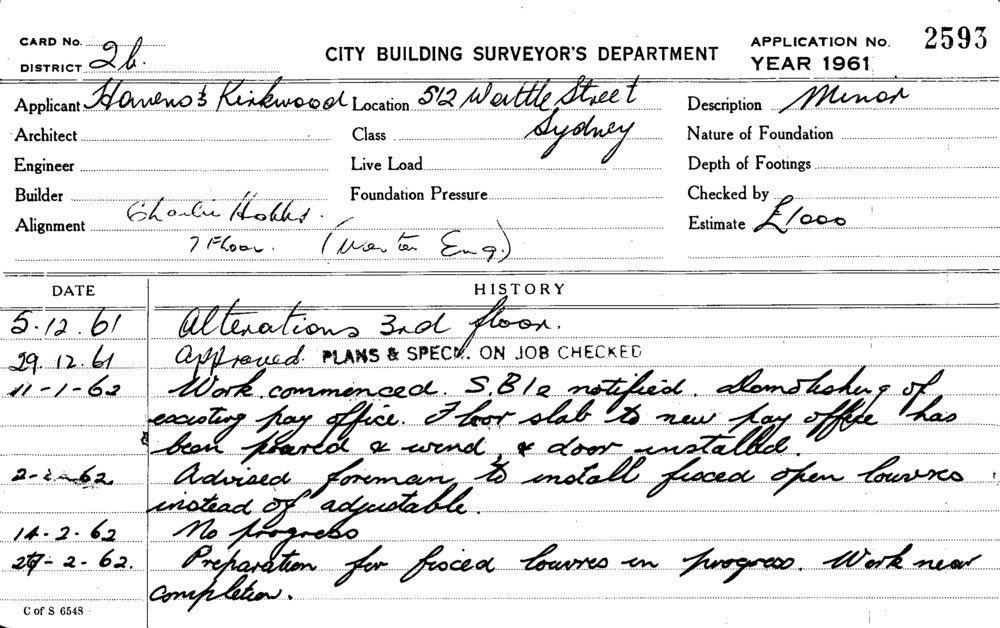 CARD No. 2b.
DISTRICT
CITY BUILDING SURVEYOR'S DEPARTMENT
APPLICATION No. 2593
YEAR 1961
Applicant Kirkwood Location 512 Wattle Street Sydney Description Minor
Architect Class Nature of Foundation
Engineer Live Load Depth of Footings
Builder Foundation Pressure Checked by
Alignment Charlie Hobbs. Estimate £1000
7 Floor. (Eng.)
DATE HISTORY
5.12.61 Alterations 3rd floor.
29.12.61 Approved. PLANS & SPECN. ON JOB CHECKED
11-1-62 Work commenced. S.B/e notified. Demolishing of
existing pay office. Floor slab to new pay office has
been poured & wind. & door installed.
2-2-62 Advised foreman to install fixed open louvres
instead of adjustable.
14-2-62 No progress
27-2-62. Preparation for fixed louvres in progress. Work near
completion.
C of S 6548